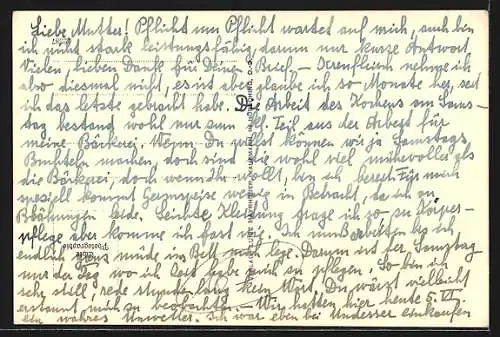 Liebe Mutter! Pflicht um Pflicht wartet auf mich, auch bin
ich nicht stark leistungsfähig, darum nur kurze Antwort.
Vielen, lieben Dank für Deinen Brief. – nehme ich
also diesmal nicht, es ist aber glaube ich so Monate her, seit
ich das letzte gebracht habe. Die Arbeit des Kochens am Sams-
tag bestand wohl nur zum kl. Teil aus der Arbeit für
meine Bäckerei. Wenn Du willst können wir ja Samstags
machen, doch sind die wohl viel mühevoller als
die Bäckerei, doch wenn Ihr wollt, bin ich bereit. Für mich
speziell kommt wenig in Betracht, da ich an
Blähungen leide. Leichte Kleidung trage ich ja, zu Körper-
pflege aber komme ich fast nie. Ich muss arbeiten bis ich
endlich ganz müde ins Bett mich lege. Darum ist der Samstag
nur der Tag wo ich Zeit habe mich zu pflegen. So bin ich
sehr still, rede stundenlang kein Wort. Du wärst vielleicht
erstaunt mich zu beobachten. – Wir hatten hier heute 5. VI.
ein wahres Unwetter. Ich war eben bei einkaufen
Echte
Photographie